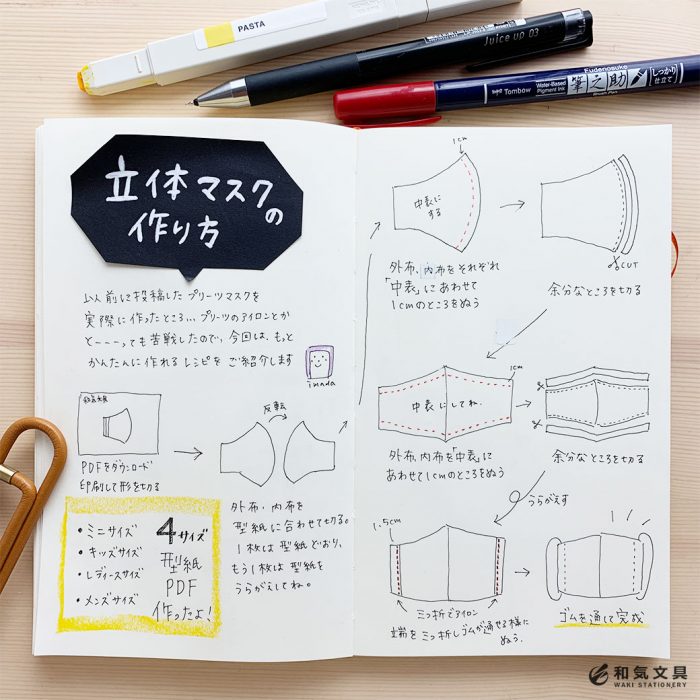 PASTA
Juice up 03
Tombow
Water-Based
Pigment Ink
Fudenosuke
筆之助
Brush Pen
しっかり
仕立て
立体マスクの
作り方
以前に投稿したプリーツマスクを
実際に作ったところ... プリーツのアイロンとか
と〜〜〜っても苦戦したので、今回は、もっと
かんたんに作れるレシピをご紹介します
imada
型紙
PDFをダウンロード
印刷して形を切る
反転
外布・内布を
型紙に合わせて切る。
1枚は型紙どおり、
もう1枚は型紙を
うらがえしてね。
・ミニサイズ
・キッズサイズ
・レディースサイズ
・メンズサイズ
4サイズ
型紙
PDF
作ったよ!
1cm
中表に
する
外布、内布をそれぞれ
「中表」にあわせて
1cmのところをぬう
CUT
余分なところを切る
1cm
中表にしてね.
外布、内布を「中表」に
あわせて1cmのところをぬう
余分なところを切る
うらがえす
1.5cm
三つ折でアイロン
端を三つ折しゴムが通せる様に
ぬう.
ゴムを通して完成
和気文具
WAKI STATIONERY